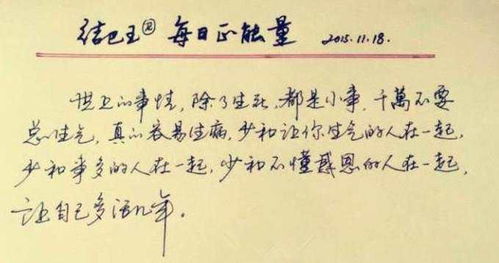 结巴王 每日正能量 2015.11.18.
世上的事情,除了生死,都是小事,千萬不要
总生气,真的容易生病,少和让你生气的人在一起,
少和事多的人在一起,少和不懂感恩的人在一起,
让自己多活几年。